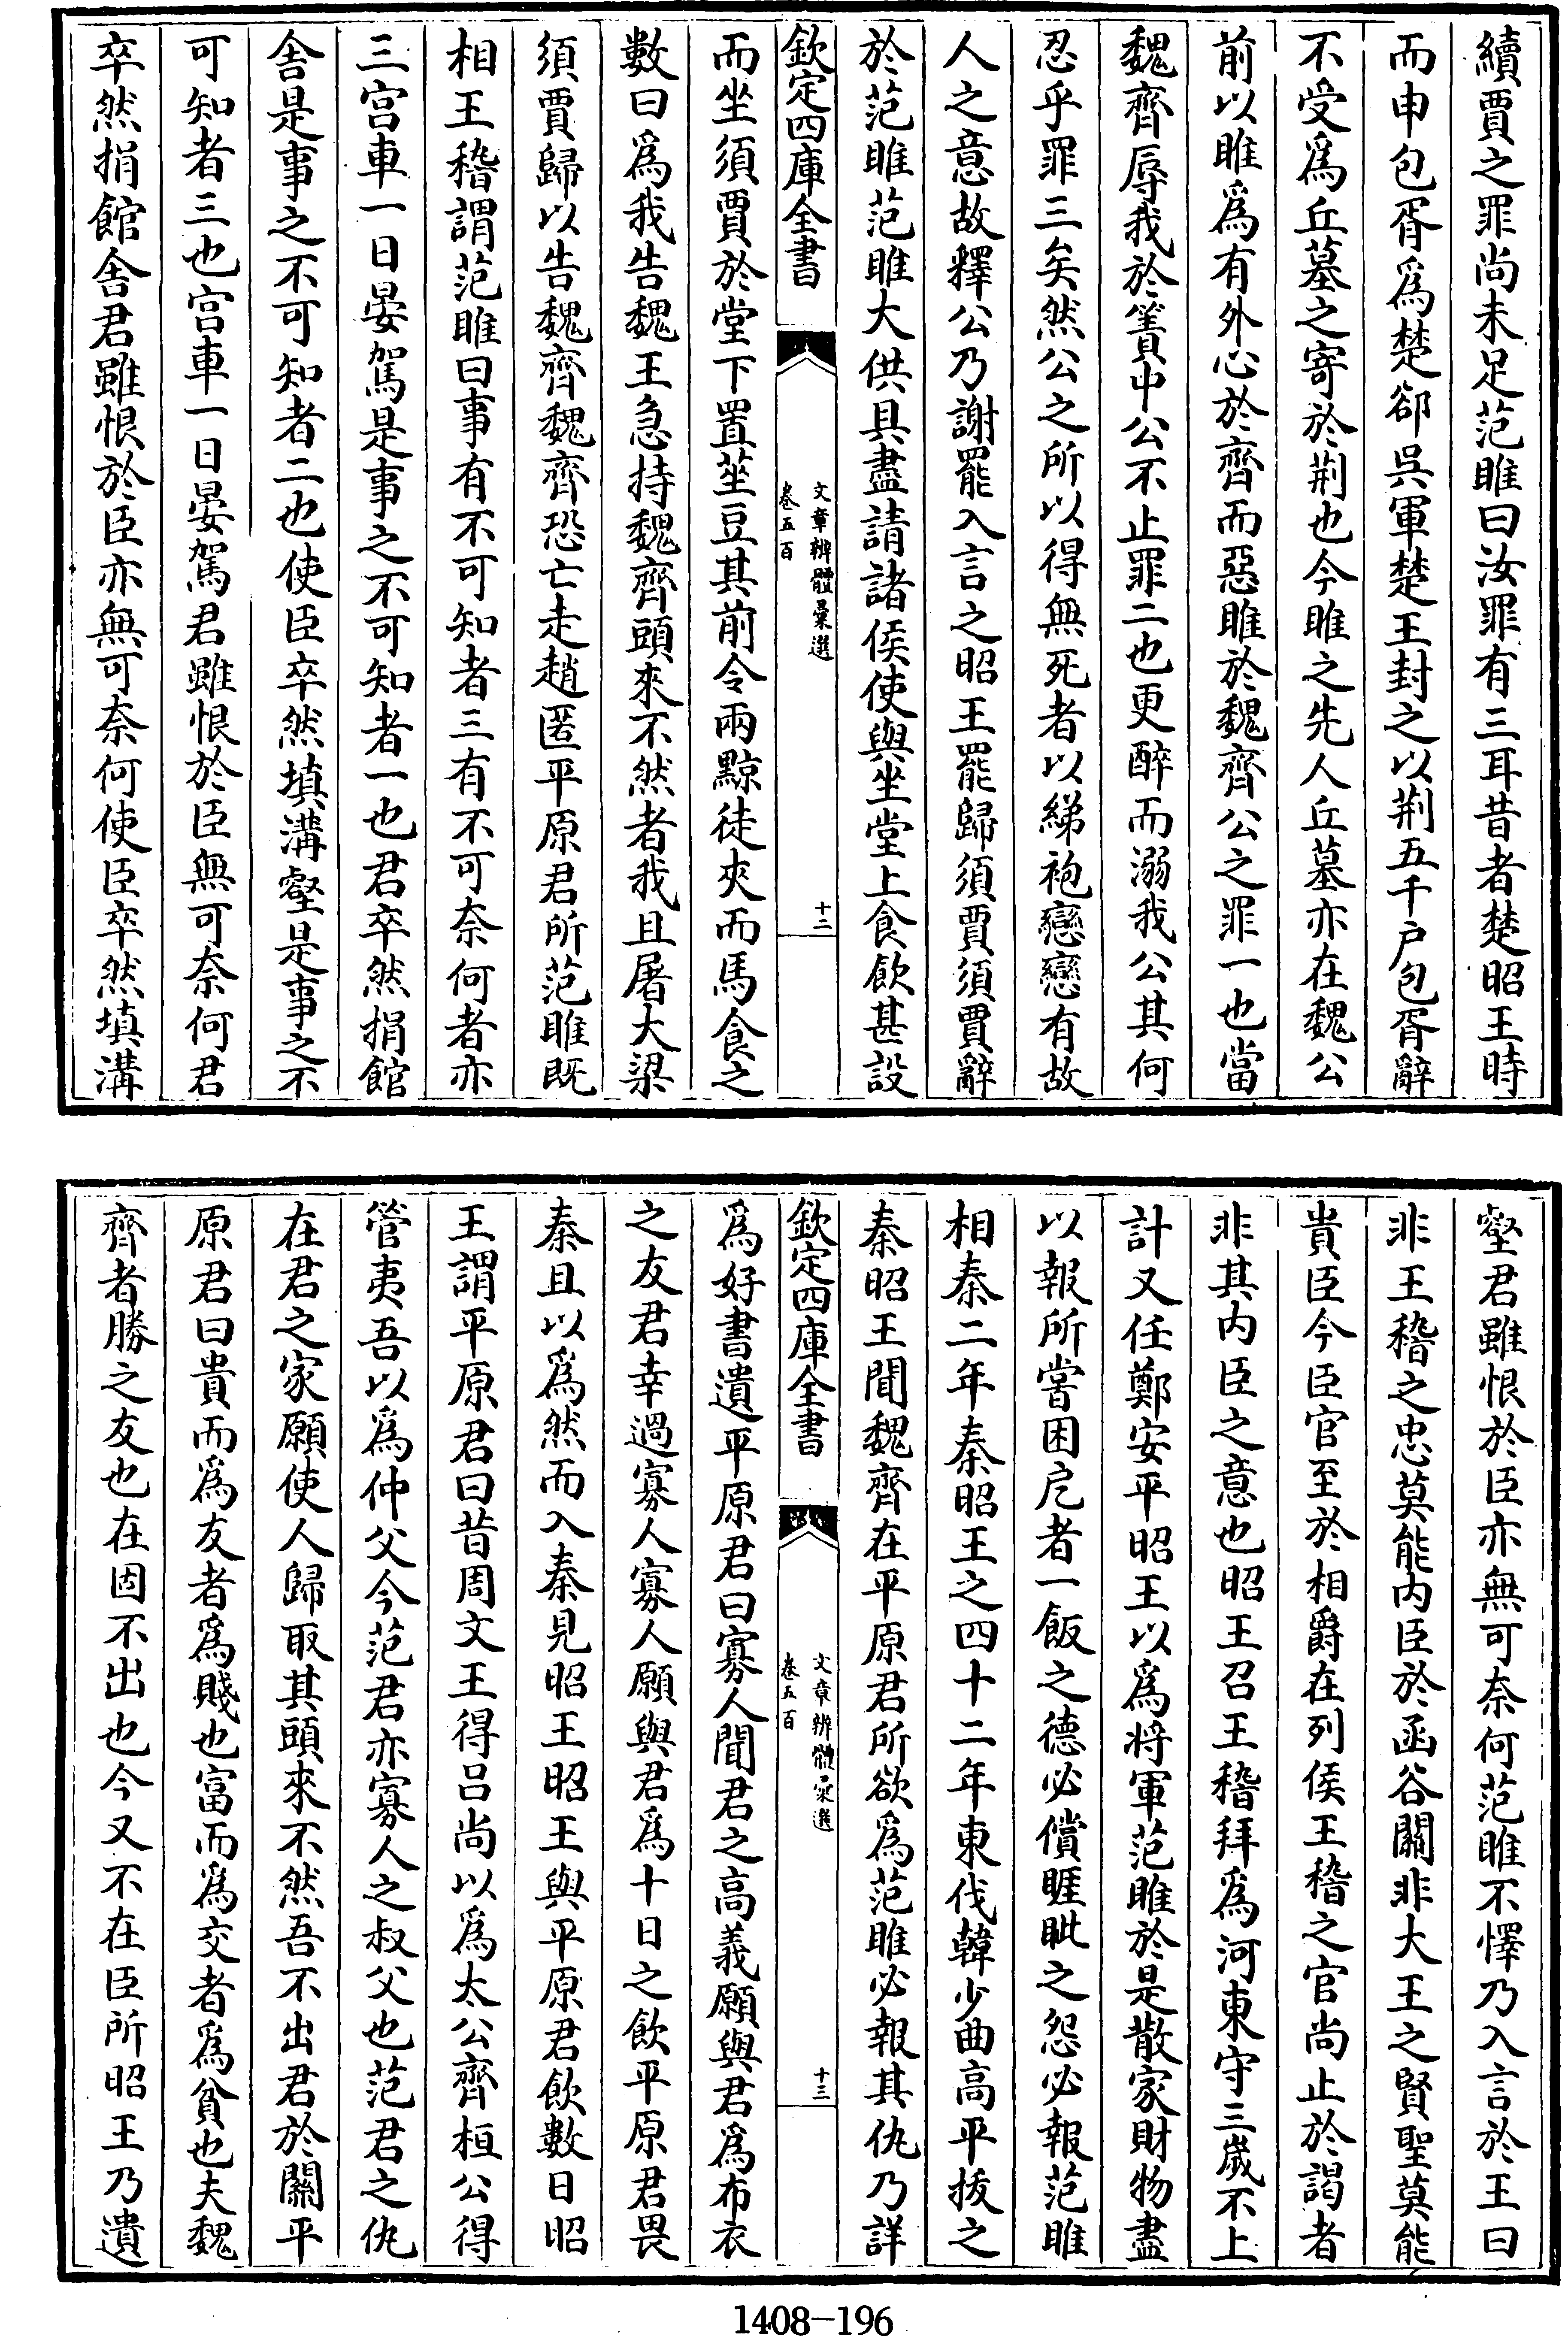 續賈之罪尚未足范雎曰汝罪有三耳昔者楚昭王時
而申包胥爲楚卻呉軍楚王封之以荆五千戸包胥辭
不受爲丘墓之寄於荆也今雎之先人丘墓亦在魏公
前以雎爲有外心於齊而惡雎於魏齊公之罪一也當
魏齊辱我於簀中公不止罪二也更醉而溺我公其何
忍乎罪三矣然公之所以得無死者以綈袍戀戀有故
人之意故釋公乃謝罷入言之昭王罷歸須賈須賈辭
於范雎范雎大供具盡請諸侯使與坐堂上食飲甚設
欽定四庫全書
文章辨體彙選
卷五百
十二
而坐須賈於堂下置莝豆其前令兩黥徒夾而馬食之
數曰爲我告魏王急持魏齊頭來不然者我且屠大梁
須賈歸以告魏齊魏齊恐亡走趙匿平原君所范雎既
相王稽謂范雎曰事有不可知者三有不可奈何者亦
三宫車一日晏駕是事之不可知者一也君卒然捐館
舍是事之不可知者二也使臣卒然填溝壑是事之不
可知者三也宫車一日晏駕君雖恨於臣無可奈何君
卒然捐館舍君雖恨於臣亦無可奈何使臣卒然填溝
壑君雖恨於臣亦無可奈何范雎不懌乃入言於王曰
非王稽之忠莫能内臣於函谷關非大王之賢聖莫能
貴臣今臣官至於相爵在列侯王稽之官尚止於謁者
非其内臣之意也昭王召王稽拜爲河東守三歲不上
計又任鄭安平昭王以爲將軍范雎於是散家財物盡
以報所嘗困戹者一飯之德必償睚眦之怨必報范雎
相秦二年秦昭王之四十二年東伐韓少曲高平拔之
秦昭王聞魏齊在平原君所欲爲范雎必報其仇乃詳
欽定四庫全書
文章辨體彙選
卷五百
十三
爲好書遺平原君曰寡人聞君之高義願與君爲布衣
之友君幸過寡人寡人願與君爲十日之飲平原君畏
秦且以爲然而入秦見昭王昭王與平原君飲數日昭
王謂平原君曰昔周文王得吕尚以爲太公齊桓公得
管夷吾以爲仲父今范君亦寡人之叔父也范君之仇
在君之家願使人歸取其頭來不然吾不出君於關平
原君曰貴而爲友者爲賤也富而爲交者爲貧也夫魏
齊者勝之友也在固不出也今又不在臣所昭王乃遺
1408-196